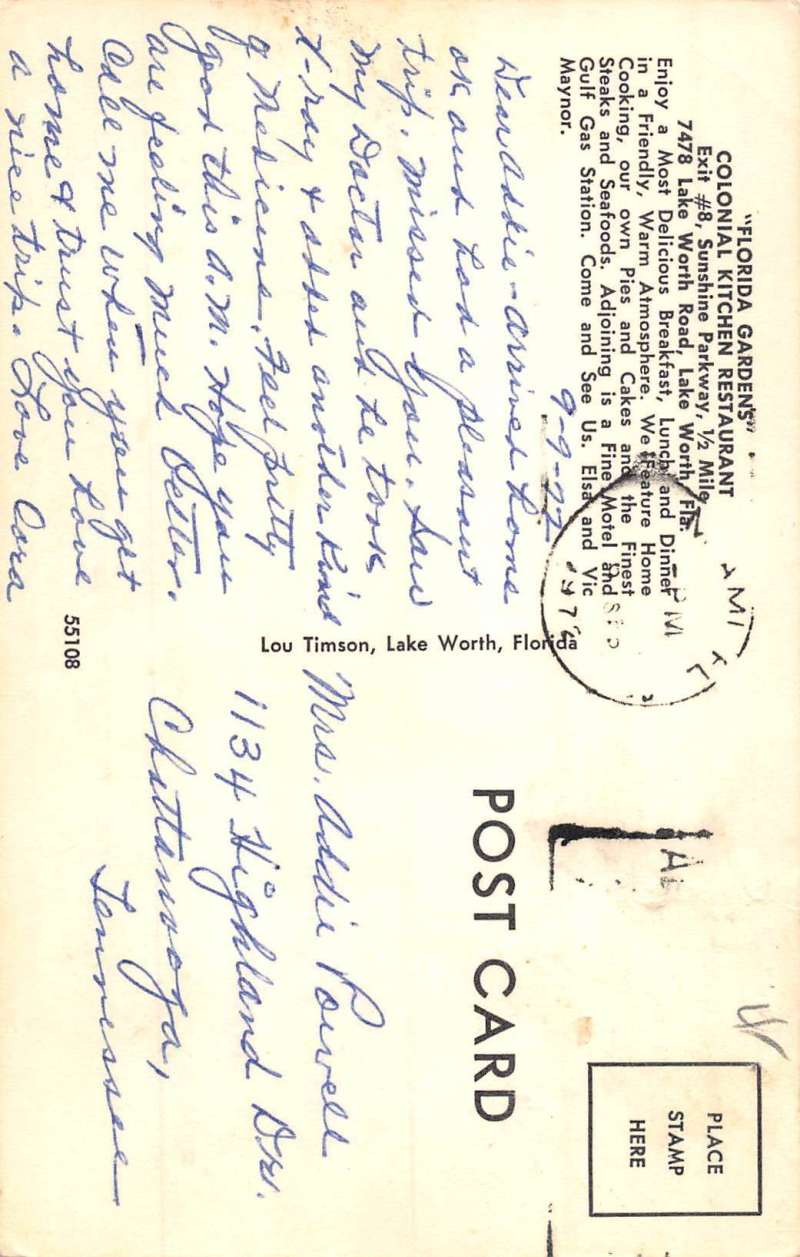 "FLORIDA GARDENS"
COLONIAL KITCHEN RESTAURANT
Exit #8, Sunshine Parkway, ½ Mile
7478 Lake Worth Road, Lake Worth Fla.
Enjoy a Most Delicious Breakfast, Lunch and Dinner
in a Friendly, Warm Atmosphere. We Feature Home
Cooking, our own Pies and Cakes and the Finest
Steaks and Seafoods. Adjoining is a Fine Motel and
Gulf Gas Station. Come and See Us. Elsa and Vic
Maynor.
9-9-72
Dear Addie - arrived home
ok and had a pleasant
trip. Missed you. Saw
my Doctor and he took
X-ray & added another kind
of Medicine. Feel pretty
good this A.M. Hope you
are feeling much better.
Call me when you get
home & trust you have
a nice trip. Love Cora
55108
Lou Timson, Lake Worth, Florida
AMI FL
PM
SEP
1972
POST CARD
PLACE
STAMP
HERE
Mrs. Addie Powell
1134 Highland Dr.
Chattanooga,
Tennessee